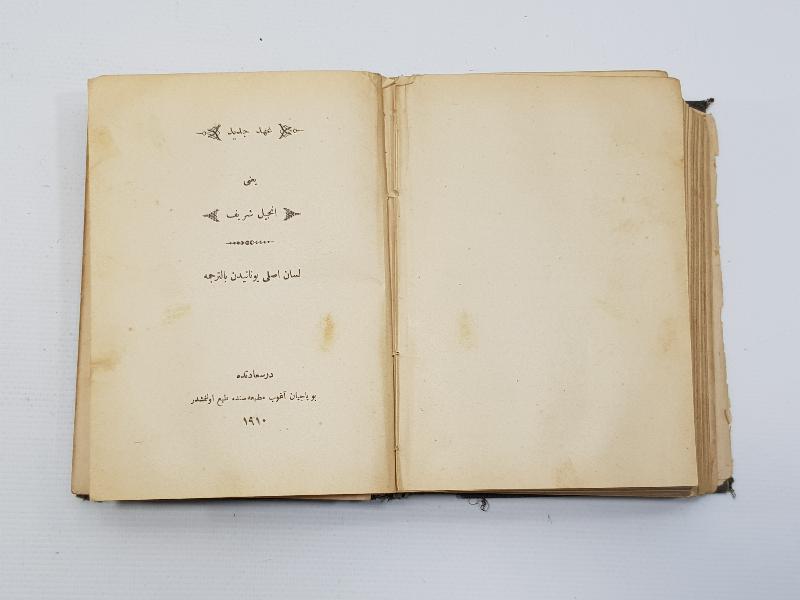 عهد جدید
یعنی
انجیل شریف
لسان اصلی یونانیدن بالترجمه
درسعادتده
بویاجیان آغوب مطبعه‌سنده طبع اولنمشدر
١٩١٠